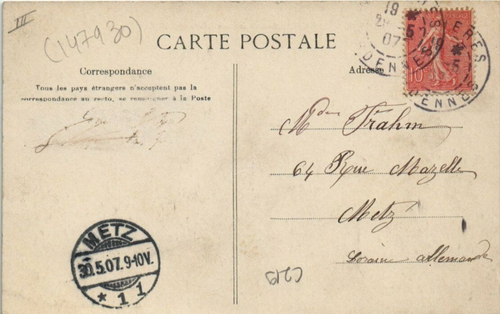 III
(147930)
CARTE POSTALE
Correspondance
Tous les pays étrangers n'acceptent pas la
correspondance au recto, se renseigner à la Poste
Adresse
19
5
07
10
Mme Frahm
64 Rue Mazelle
Metz
Loraine Allemande
METZ
30.5.07.9-10V.
* 1 1
C219